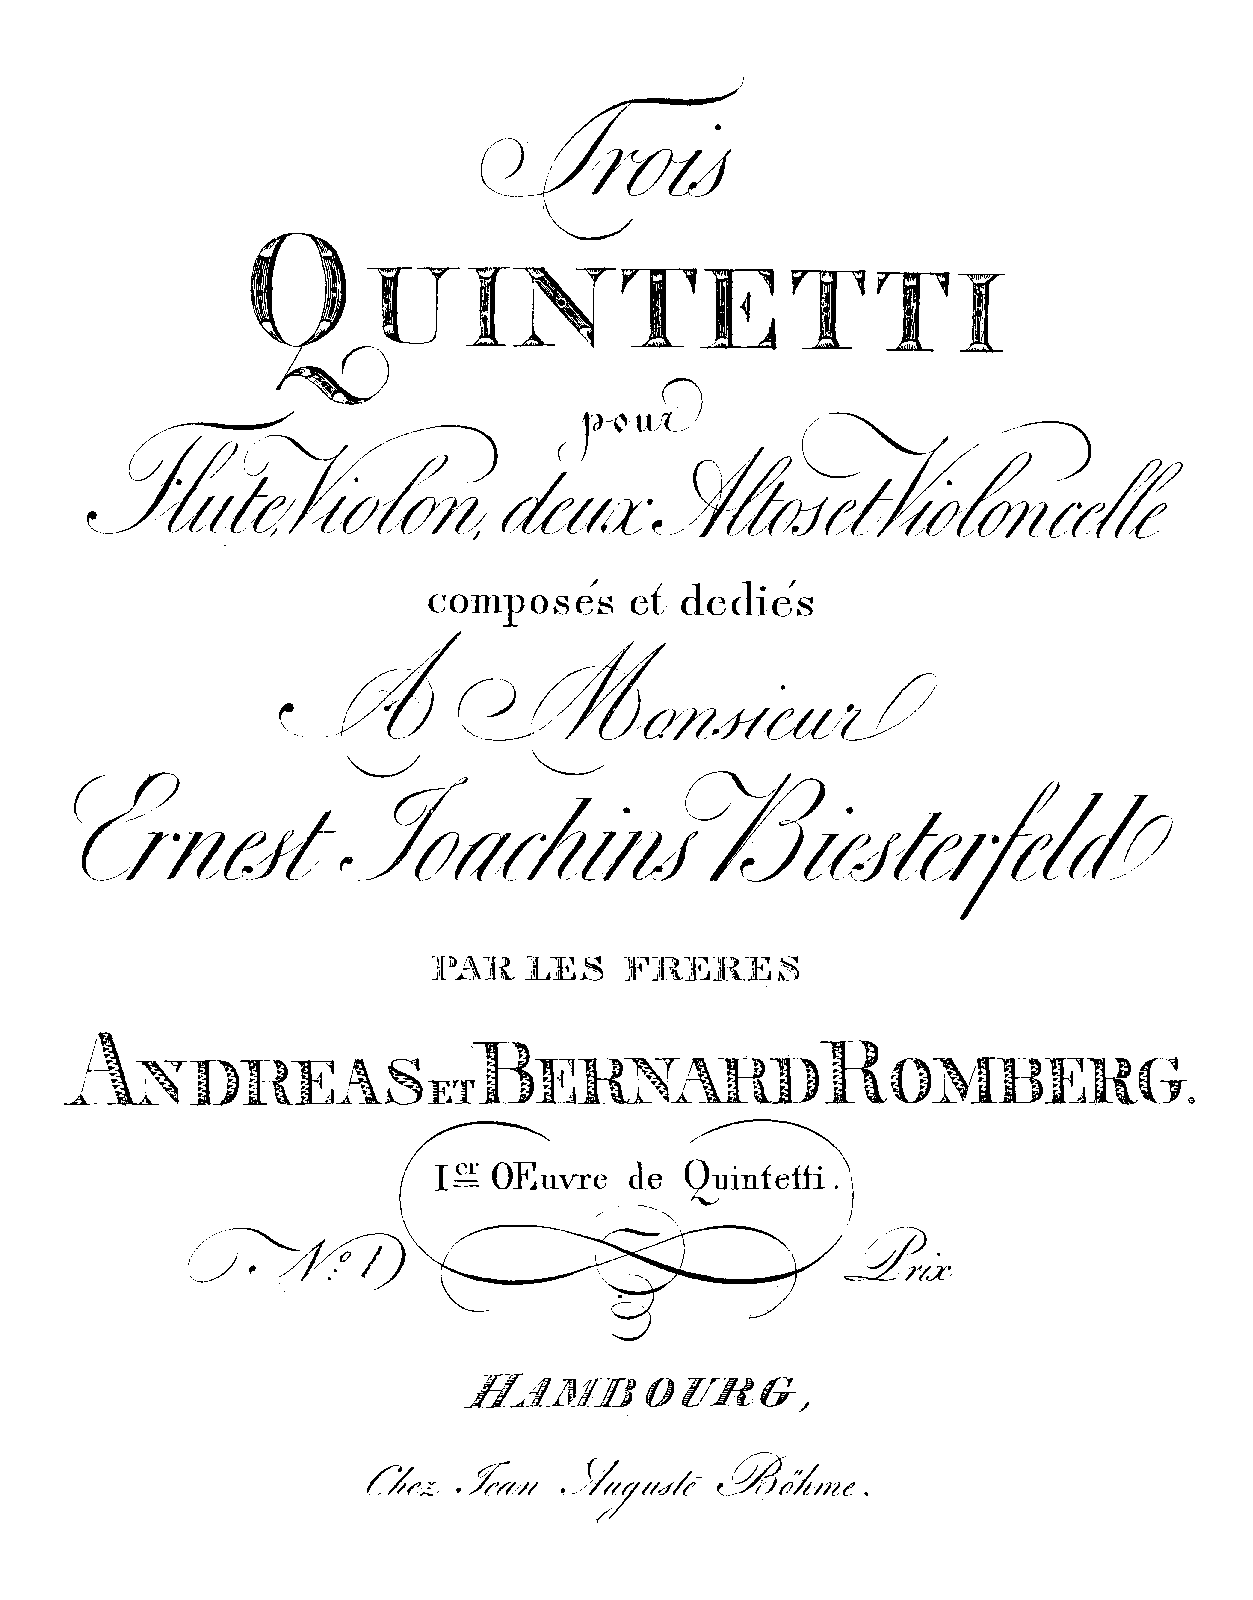 Trois
QUINTETTI
pour
Flute, Violon, deux Altos et Violoncelle
composés et dediés
A Monsieur
Ernest Ioachins Biesterfeld
PAR LES FRERES
ANDREAS ET BERNARD ROMBERG.
Ier OEuvre de Quintetti.
No. 1 Prix
HAMBOURG,
Chez Jean Auguste Böhme.